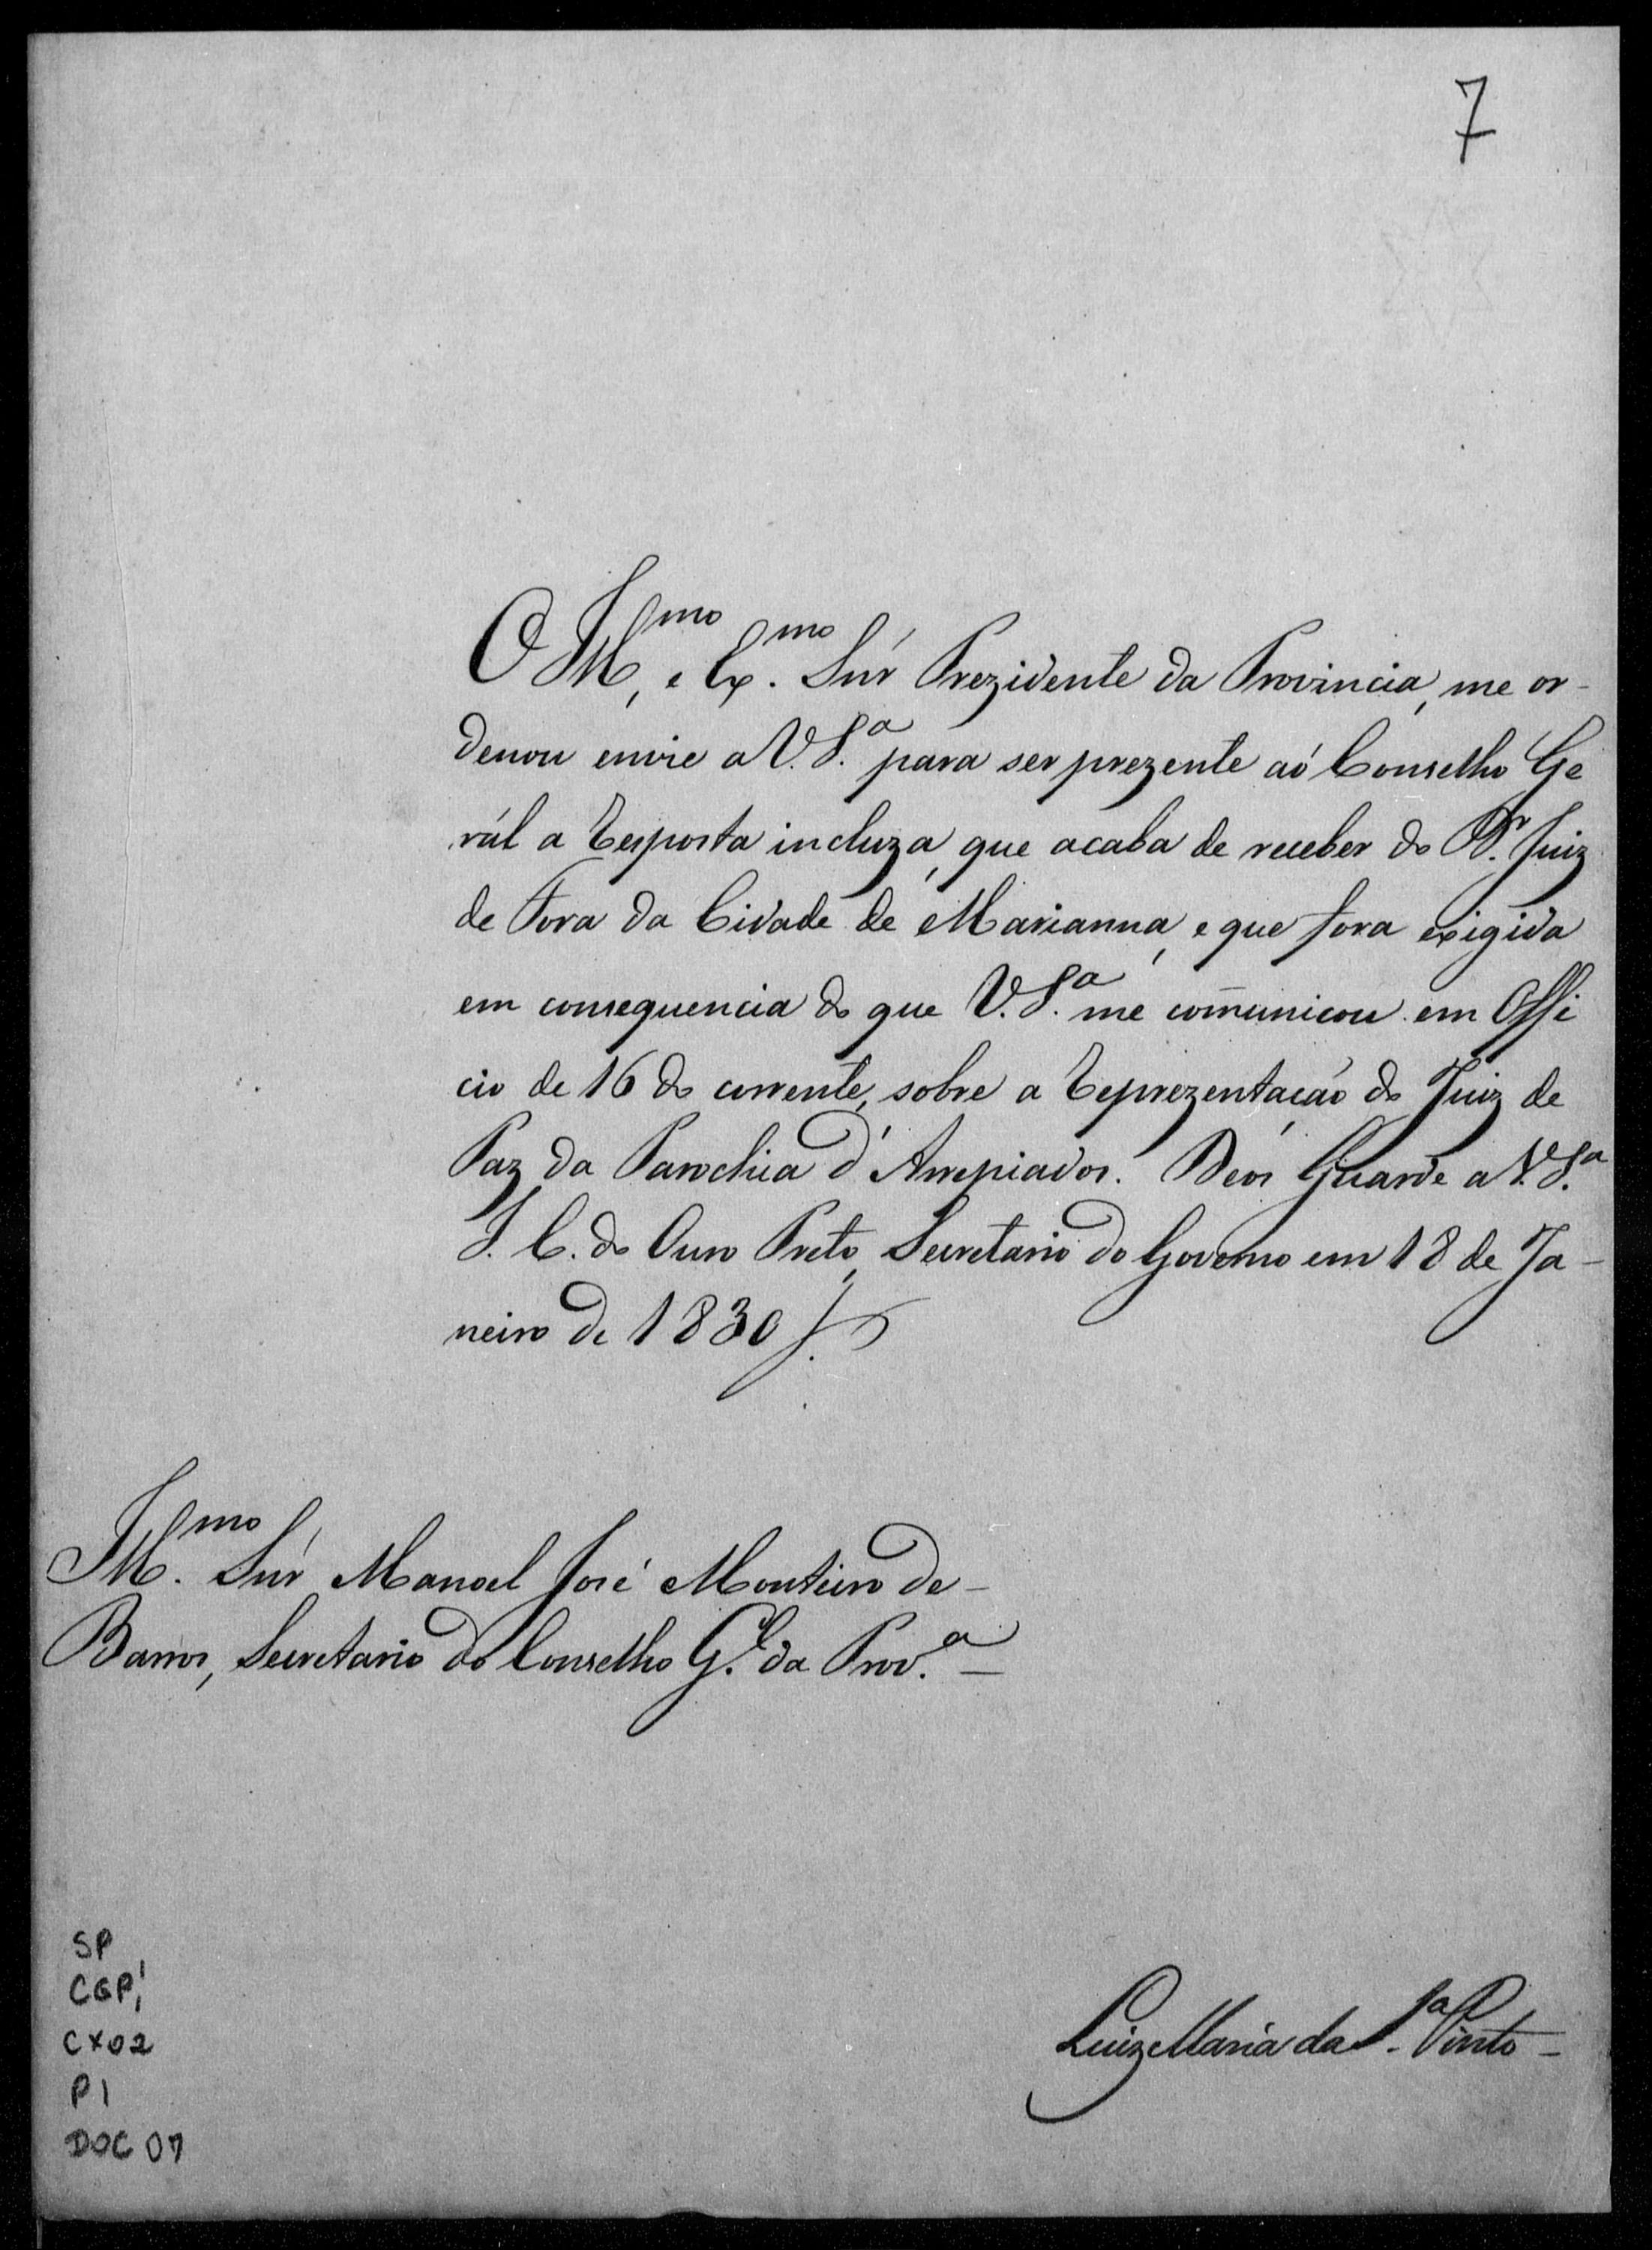 7
O Ill.mo, e Ex.mo Snŕ Prezidente da Provincia, me or-
denou envie a V. S.a para ser prezente aó Conselho Ge
rál a Resposta incluza, que acaba de receber do D.r Juiz
de Fora da Cidade de Marianna, e que fora exigida
em consequencia do que V. S.a me com̄unicou em Offi
cio de 16 do corrente, sobre a Reprezentaçaõ do Juiz de
Paz da Parochia d'Arrepiados. Deos Guarde a V. S.a
I. C. do Ouro Preto, Secretario do Governo em 18 de Ja-
neiro de 1830
Ill.mo Snŕ Manoel José Monteiro de-
Barros, Secretario do Conselho G.l da Prov.a —
Luiz Maria da S.a Pinto-
SP
CGP1
CX02
P1
DOC 07